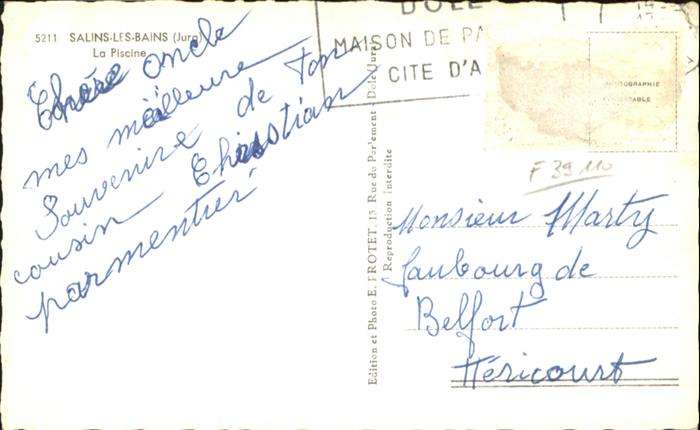 5211 SALINS-LES-BAINS (Jura)
La Piscine
Chère oncle
mes meilleure
Souvenire de ton
cousin Christian
parmentier
DOLE
MAISON DE PA
CITE D'A
Edition et Photo E. PROTET, 15 Rue du Parlement - Dole (Jura)
Reproduction interdite
F 39 110
Monsieur Marty
faubourg de
Belfort
Héricourt